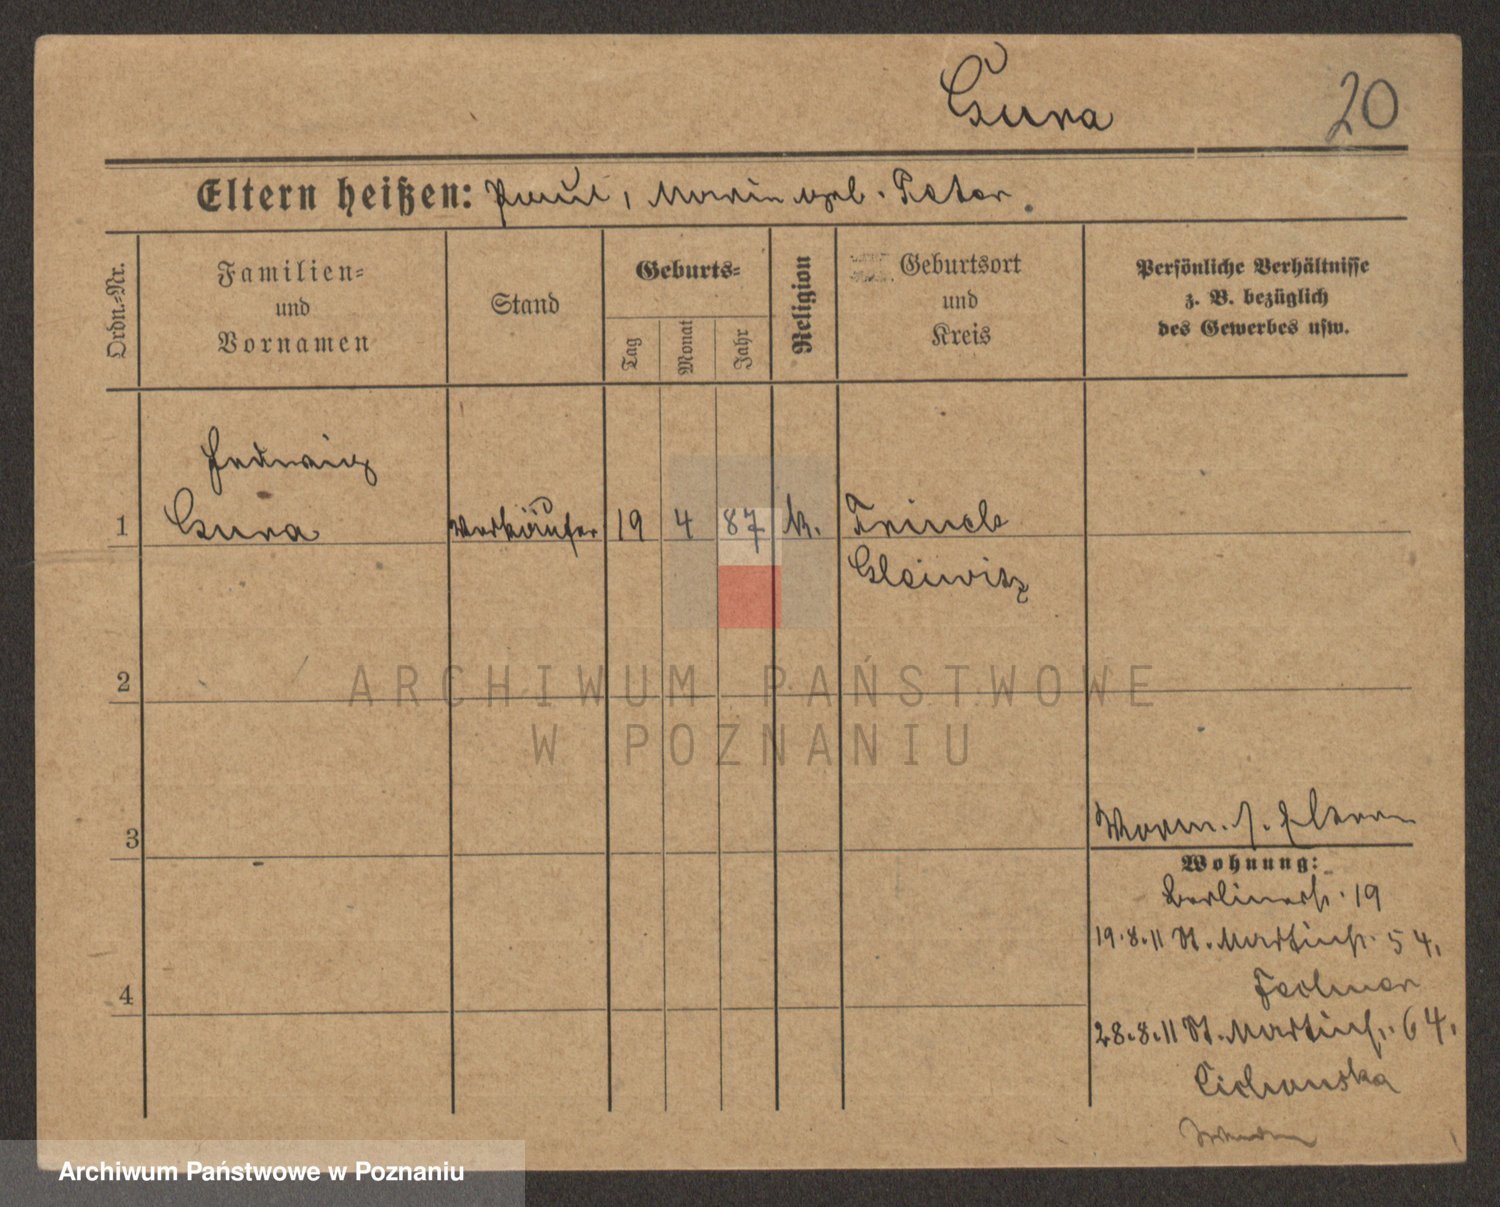 Gura
20
Eltern heißen: Paul, Maria geb. Peter.
Ordn.-Nr.
Familien-
und
Vornamen
Stand
Geburts-
Tag
Monat
Jahr
Religion
Geburtsort
und
Kreis
Persönliche Verhältnisse
z. B. bezüglich
des Gewerbes usw.
Hedwig
1 Gura Verkäufer 19 4 87 k. Trinek
Gleiwitz
2
3
Worm. s. Eltern
Wohnung:
Berlinerstr. 19
19.8.11 St. Martinstr. 54,
28.8.11 St. Martinstr. 64,
Cichanska
4
ARCHIWUM PAŃSTWOWE
W POZNANIU
Archiwum Państwowe w Poznaniu